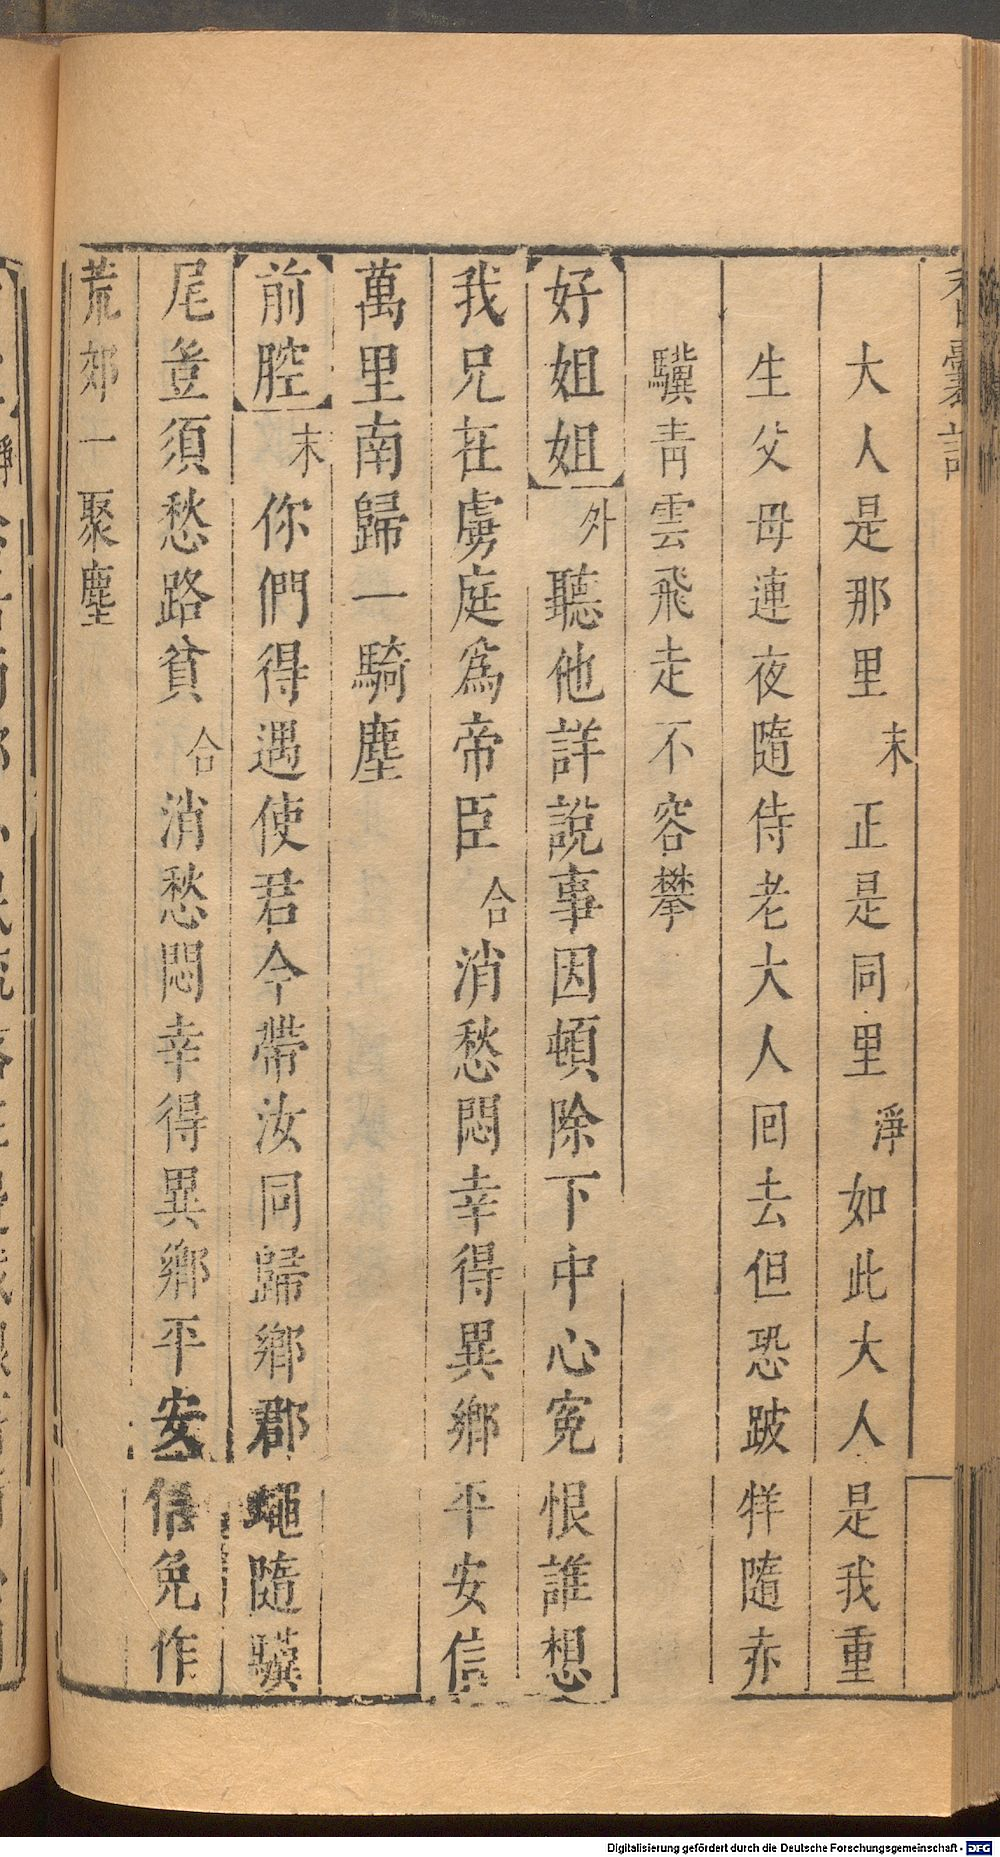 香囊記
大人是那里末正是同里淨如此大人是我重
生父母連夜隨侍老大人回去但恐跛牂隨赤
驥青雲飛走不容攀
【好姐姐】外聽他詳說事因頓除下中心寃恨誰想
我兄在虜庭爲帝臣合消愁悶幸得異鄉平安信
萬里南歸一騎塵
【前腔】末你們得遇使君今帶汝同歸鄉郡蠅隨驥
尾豈須愁路貧合消愁悶幸得異鄉平安信免作
荒郊一聚塵
Digitalisierung gefördert durch die Deutsche Forschungsgemeinschaft - DFG